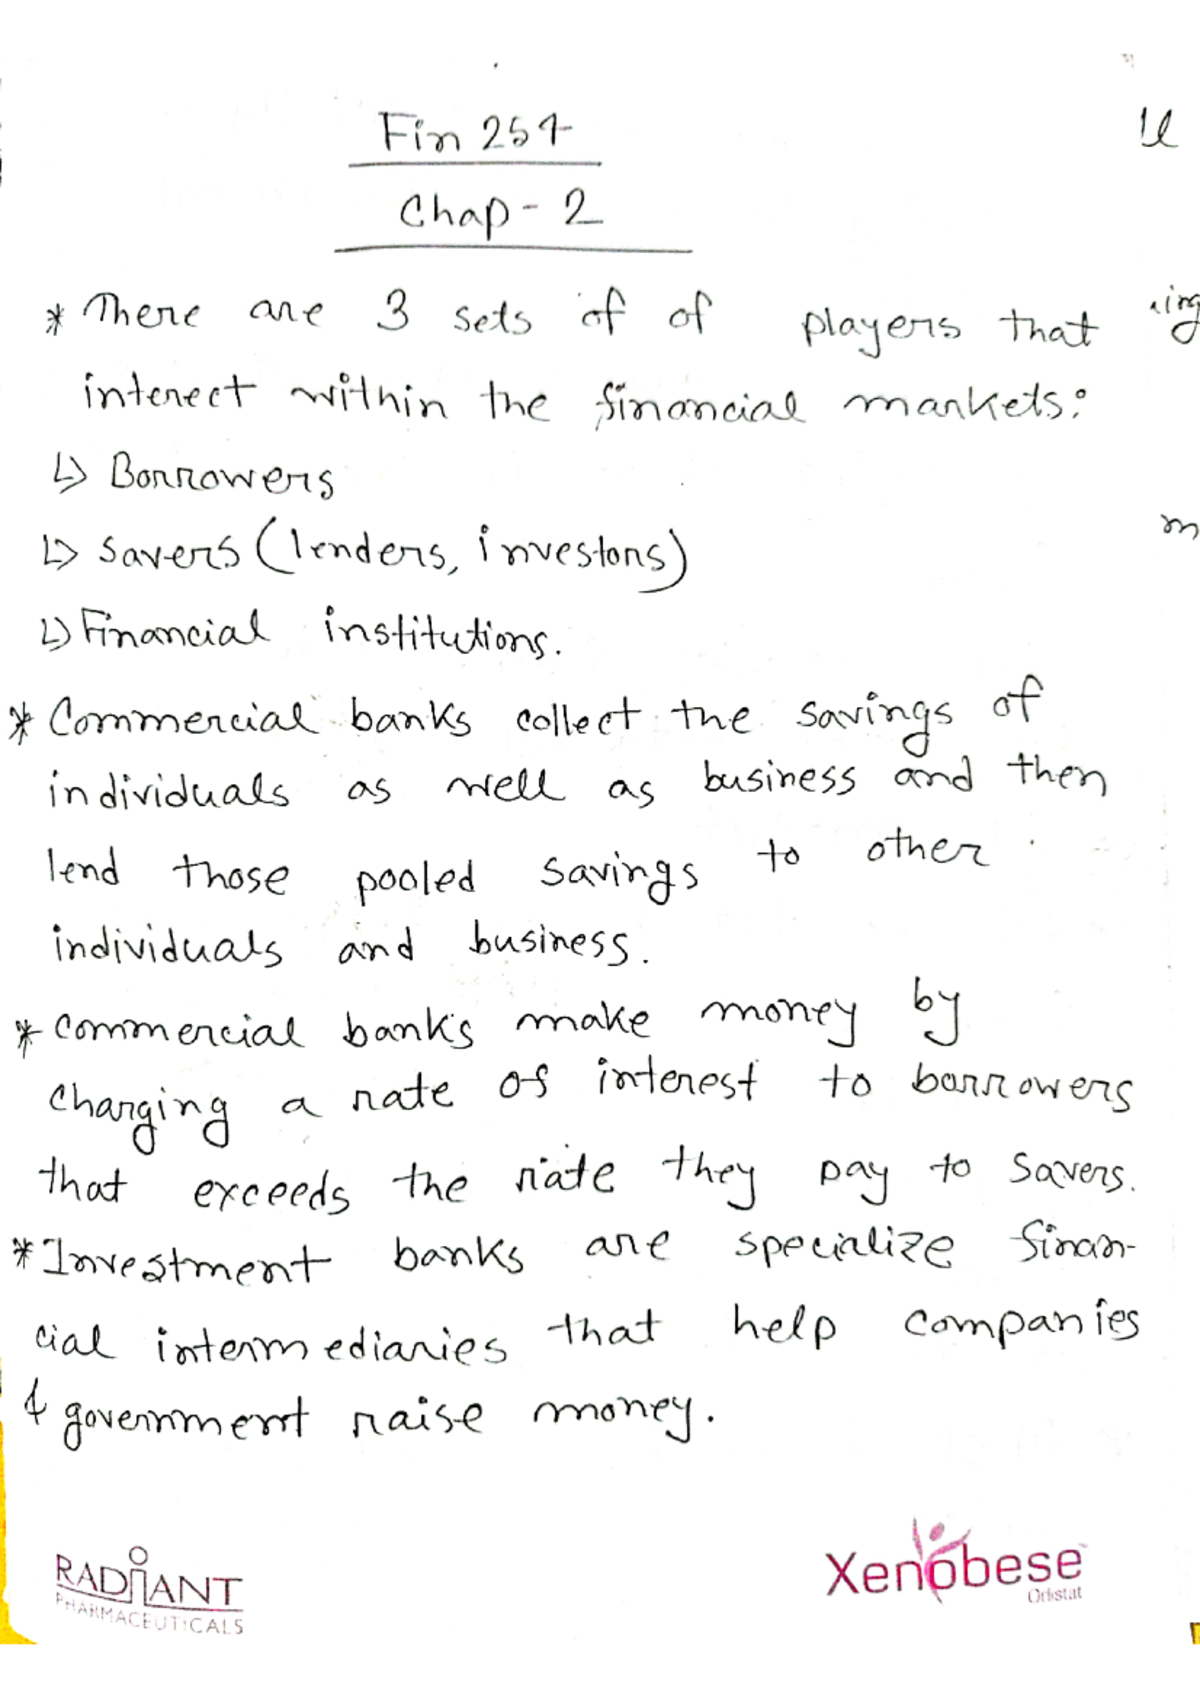 Fin 254
Chap-2
* There are 3 sets of of players that
interect within the financial markets:
↳ Borrowers
↳ Savers (lenders, investors)
↳ Financial institutions.
* Commercial banks collect the savings of
individuals as well as business and then
lend those pooled savings to other
individuals and business.
* Commercial banks make money by
charging a rate of interest to borrowers
that exceeds the rate they pay to savers.
* Investment banks are specialize finan-
cial intermediaries that help companies
& government raise money.
RADIANT
PHARMACEUTICALS
Xenobese
Orlistat